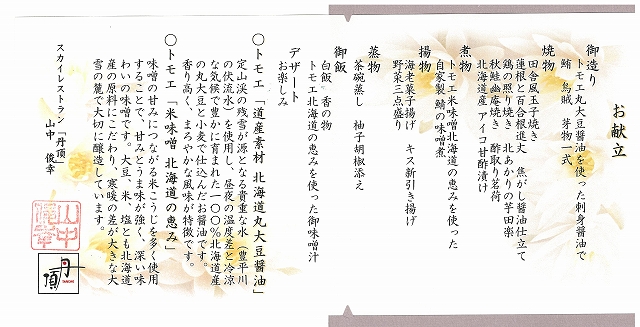 お献立
御造り
トモエ丸大豆醤油を使った刺身醤油で
鮪 烏賊 芽物一式
焼物
田舎風玉子焼き
蓮根と百合根進丈 焦がし醤油仕立て
鶏の照り焼き 北あかりの芋田楽
秋鮭幽庵焼き 酢取り茗荷
北海道産アイコ甘酢漬け
煮物
トモエ米味噌北海道の恵みを使った
自家製鯖の味噌煮
揚物
海老菓子揚げ キス新引き揚げ
野菜三点盛り
蒸物
茶碗蒸し 柚子胡椒添え
御飯
白飯 香の物
トモエ北海道の恵みを使った御味噌汁
デザート
お楽しみ
〇トモエ「道産素材 北海道丸大豆醤油」
定山渓の残雪が源となる貴重な水(豊平川
の伏流水)を使用し、昼夜の温度差と冷涼
な気候で豊かに育まれた一〇〇%北海道産
の丸大豆と小麦で仕込んだお醤油です。
香り高く、まろやかな風味が特徴です。
〇トモエ「米味噌 北海道の恵み」
味噌の甘みにつながる米こうじを多く使用
することで、甘みとうま味が強く、深い味
わいの味噌です。大豆、米、塩とも北海道
産の原料にこだわり、寒暖の差が大きな大
雪の麓で大切に醸造しています。
スカイレストラン「丹頂」
山中 俊幸
丹頂